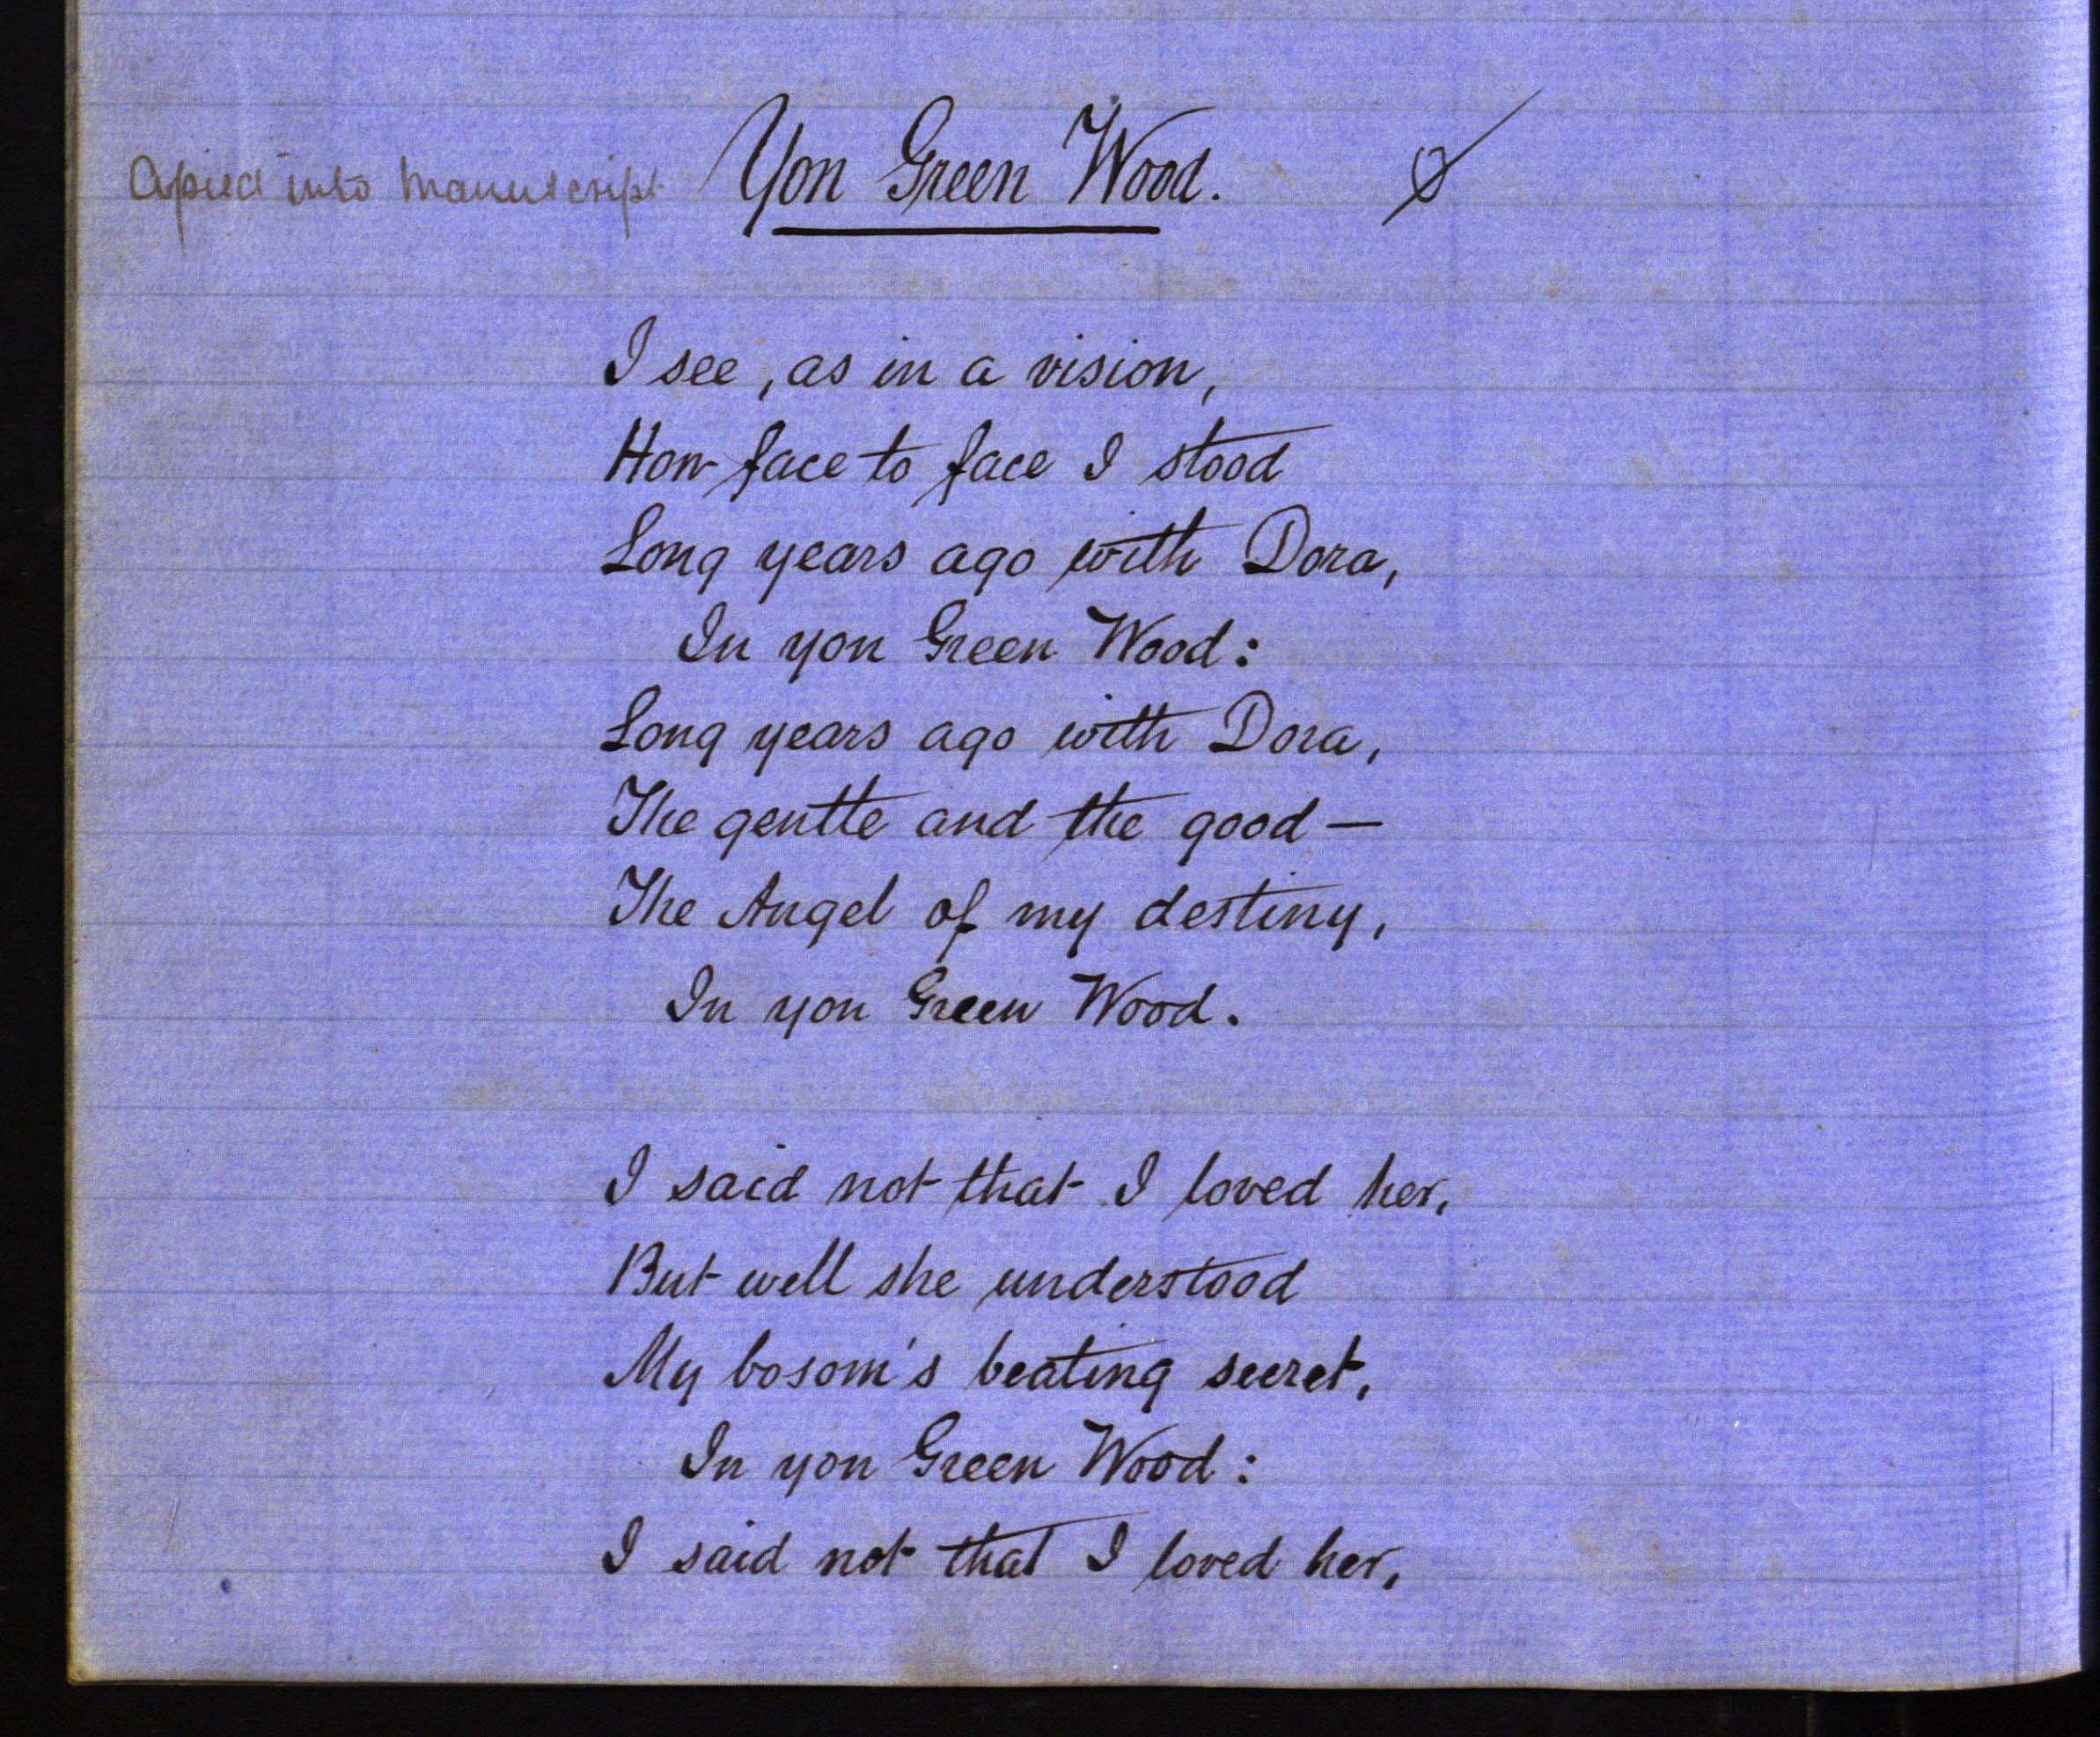 Copied into manuscript Yon Green Wood.
I see, as in a vision,
How face to face I stood
Long years ago with Dora,
In yon Green Wood:
Long years ago with Dora,
The gentle and the good —
The Angel of my destiny,
In yon Green Wood.
I said not that I loved her,
But well she understood
My bosom's beating secret,
In yon Green Wood:
I said not that I loved her,